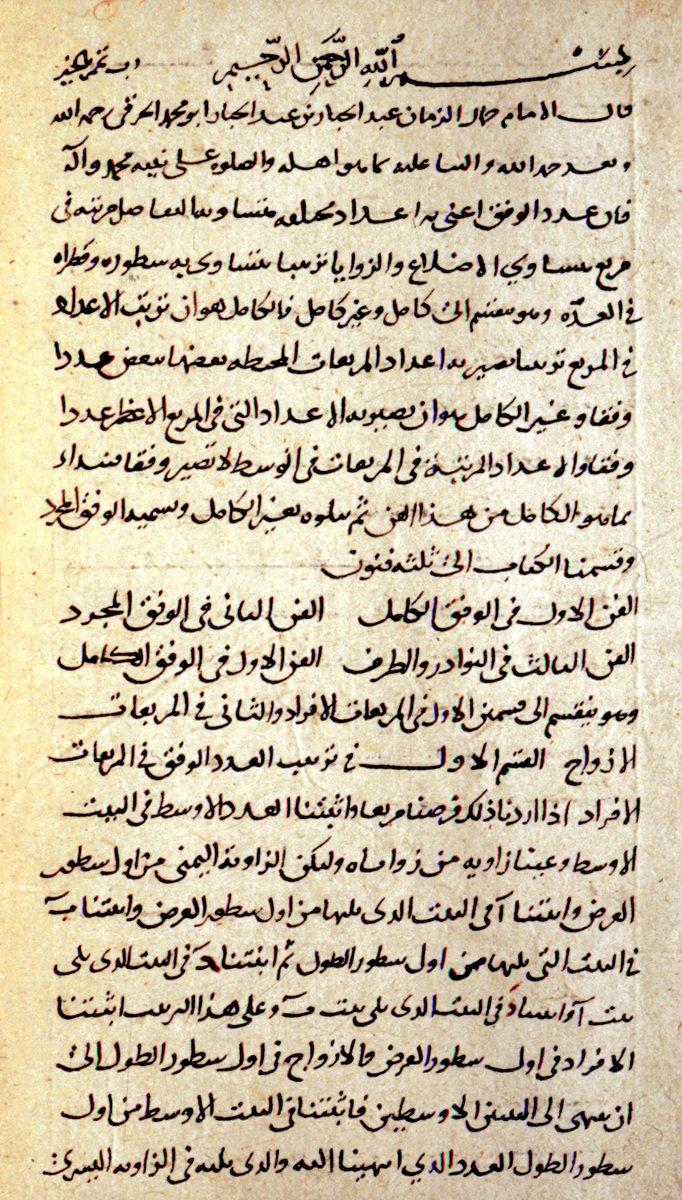 بسم الله الرحمن الرحيم رب تمم بالخير
قال الامام جمال الزمان عبد الجبار بن عبد الجبار ابو محمد الخرقي رحمه الله
وبعد حمد الله والثنا عليه كما هو اهله والصلوه على نبيه محمد وآله
فان عدد الوفق اعنى به اعداد مختلفه متساويه التفاضل مرتبه فى
مربع متساوي الاضلاع والزوايا ترتيبا يتساوى به سطوره وقطراه
في العدّه وهو ينقسم الى كامل وغير كامل فالكامل هو ان ترتب الاعداد
في المربع ترتيبا يصير به اعداد المربعات المحيطه بعضها ببعض عددا
وفقا وغير الكامل هو ان يصير به الاعداد التى فى المربع الاعظم عددا
وفقا والاعداد المرتبة فى المربعات فى الوسط لا تصير وفقا فنبداء
بما هو الكامل من هذا الفن ثم نتلوه بغير الكامل ونسميه الوفق المجرد
وقسمنا الكتاب الى ثلثه فنون
الفن الاول فى الوفق الكامل الفن الثانى فى الوفق المجرد
الفن الثالث فى النوادر والطرف الفن الاول فى الوفق الكامل
وهو ينقسم الى قسمين الاول فى المربعات الافراد والثانى فى المربعات
الازواج القسم الاول فى ترتيب العدد الوفق فى المربعات
الافراد اذا اردنا ذلك فرضنا مربعا واثبتنا العدد الاوسط فى البيت
الاوسط وعينا زاويه من زواياه ولتكن الزاوية اليمنى من اول سطور
العرض واثبتنا آ فى البيت الذى يليها من اول سطور العرض واثبتنا بـ
فى البيت التى يليها من اول سطور الطول ثم اثبتنا د فى البيت الذى يلى
بيت آ واثبتنا فى البيت الذى يلى بيت بـ وعلى هذا الترتيب اثبتنا
الافراد فى اول سطور العرض والازواج فى اول سطور الطول الى
ان ننتهى الى البيتين الاوسطين فاثبتنا فى البيت الاوسط من اول
سطور الطول العدد الذي انتهينا اليه والذى يليه فى الزاويه اليسرى